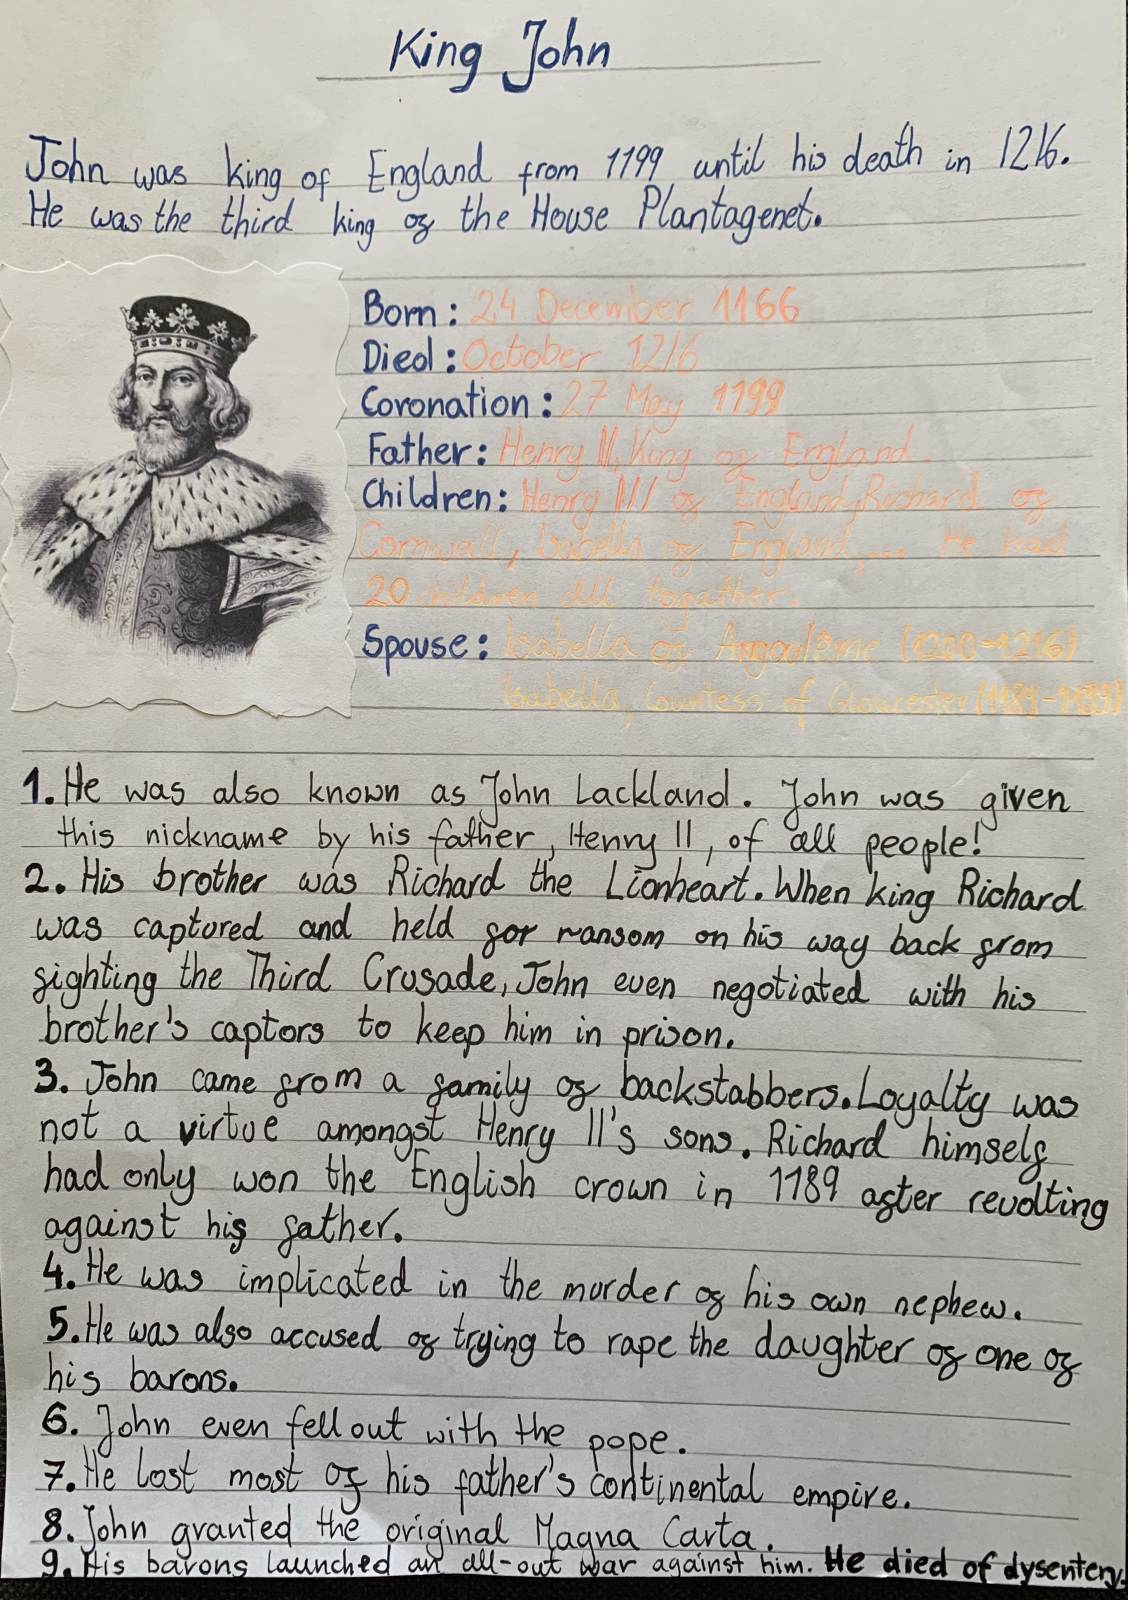 King John
John was king of England from 1199 until his death in 1216.
He was the third king of the House Plantagenet.
Born: 24 December 1166
Died: October 1216
Coronation: 27 May 1199
Father: Henry II, King of England.
Children: Henry III of England, Richard of
Cornwall, Isabella of England,... He had
20 children all togather.
Spouse: Isabella of Angoulême (1200-1216)
Isabella, Countess of Gloucester (1189-1199)
1. He was also known as John Lackland. John was given
this nickname by his father, Henry II, of all people!
2. His brother was Richard the Lionheart. When king Richard
was captured and held for ransom on his way back from
fighting the Third Crusade, John even negotiated with his
brother's captors to keep him in prison.
3. John came from a family of backstabbers. Loyalty was
not a virtue amongst Henry II's sons. Richard himself
had only won the English crown in 1189 after revolting
against his father.
4. He was implicated in the murder of his own nephew.
5. He was also accused of trying to rape the daughter of one of
his barons.
6. John even fell out with the pope.
7. He lost most of his father's continental empire.
8. John granted the original Magna Carta.
9. His barons launched an all-out war against him. He died of dysentery.